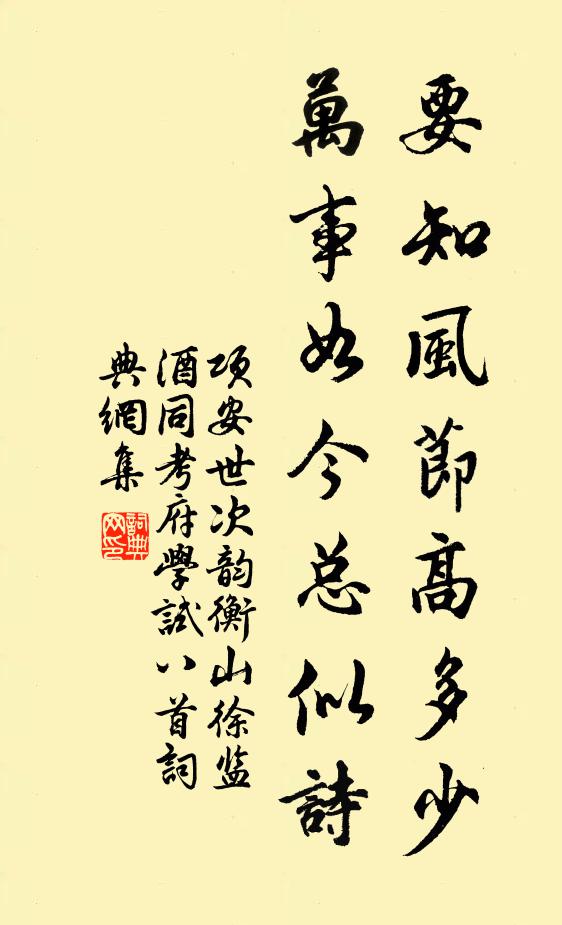 要知風節高多少
萬事如今总似詩
项安世次韵衡山徐监
酒同考府學試八首詞
典網集
詞典網印